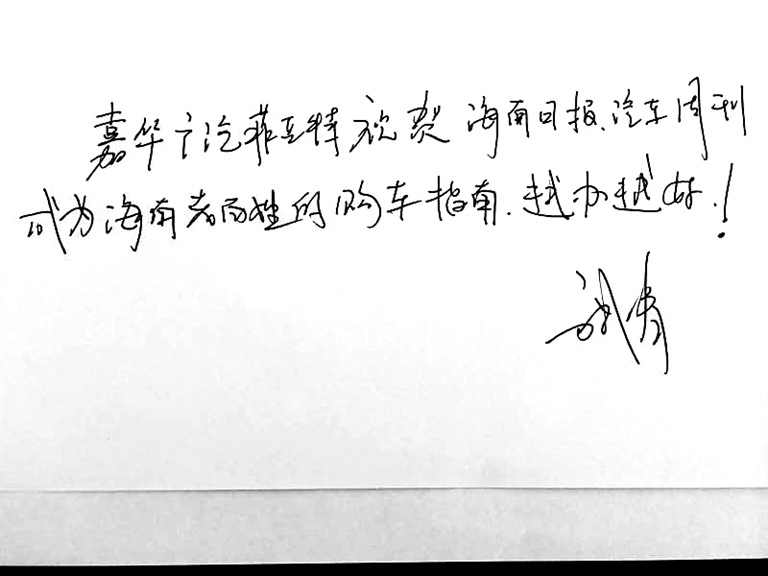 嘉华广汽菲亚特祝贺海南日报.汽车周刊
成为海南老百姓的购车指南.越办越好.!